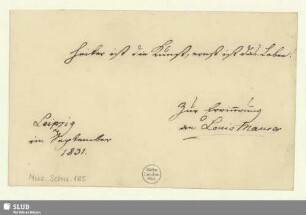 heiter ist die Kunst, ernst ist das Leben.
Zur Erinnerung
an Louis Maurer
Leipzig
im September
1831.
Mus. Schu. 185
SLUB